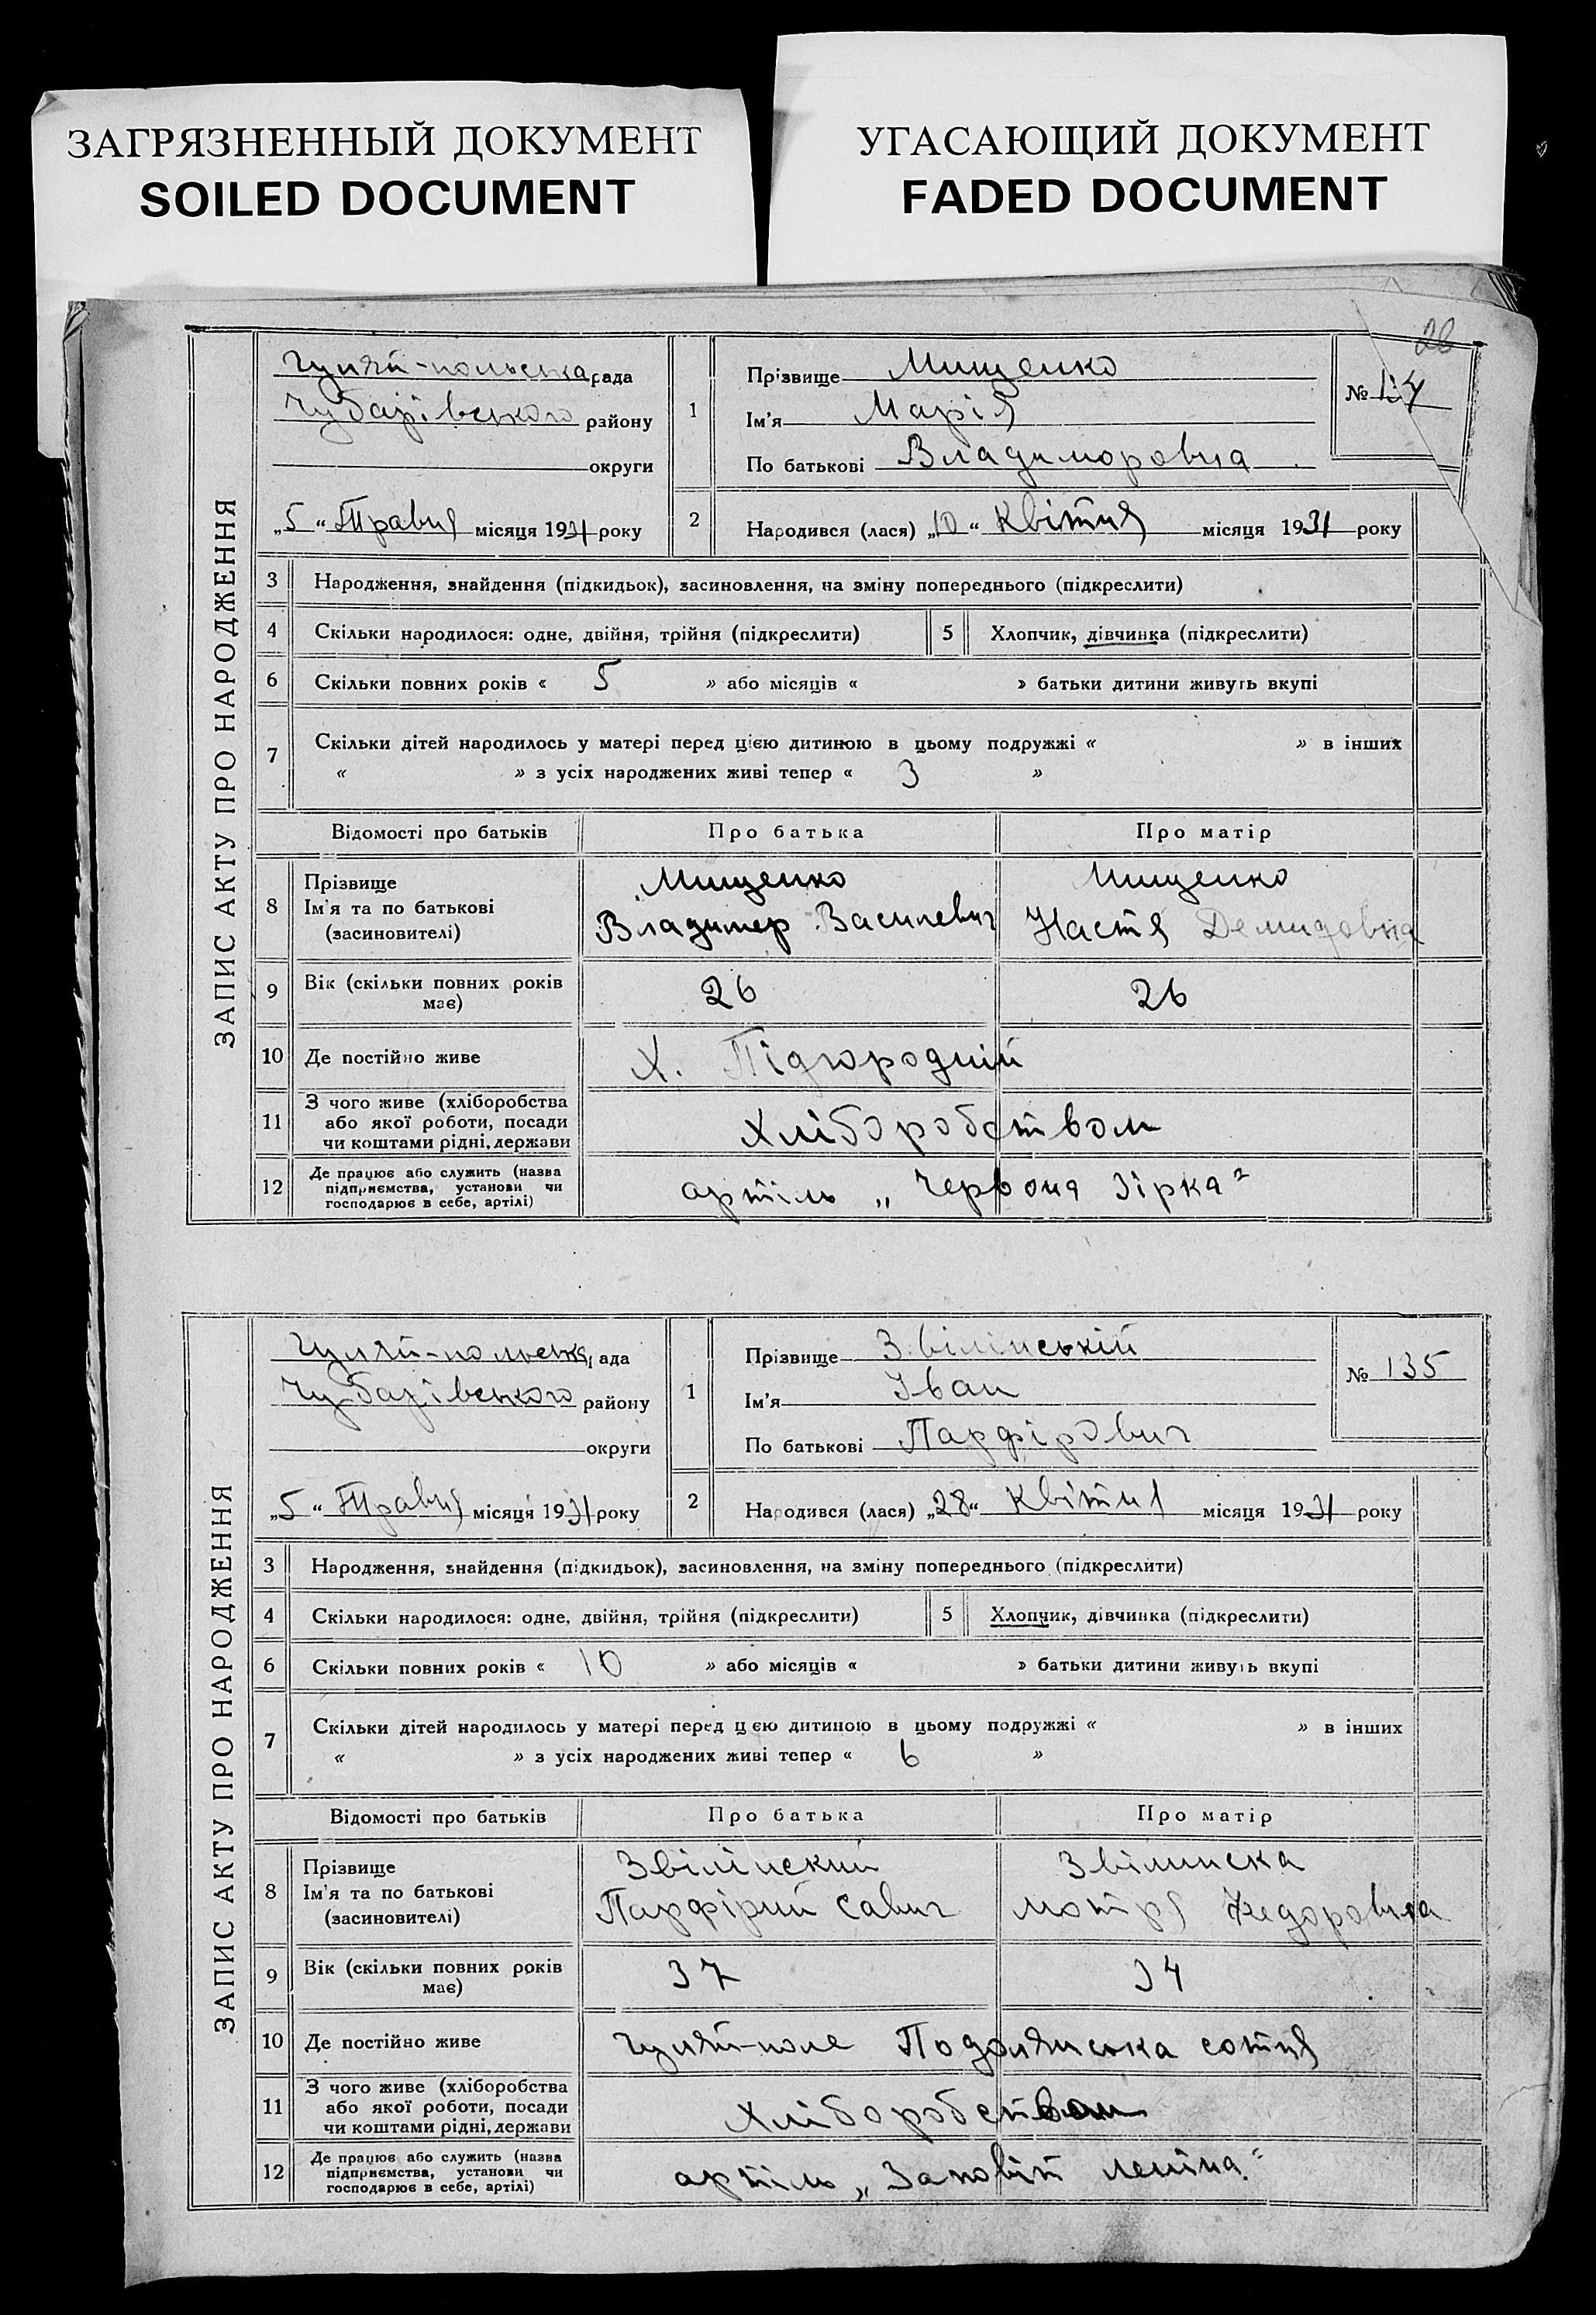 ЗАГРЯЗНЕННЫЙ ДОКУМЕНТ
SOILED DOCUMENT
УГАСАЮЩИЙ ДОКУМЕНТ
FADED DOCUMENT
28
ЗАПИС АКТУ ПРО НАРОДЖЕННЯ
Гуляй-польська рада
Чубарівського району
округи
„5“ Травня місяця 1931 року
1
Прізвище Мищенко
Ім'я Марія
По батькові Владиморовна
№
2 Народився (лася) „10“ Квітня місяця 1931 року
3 Народження, знайдення (підкидьок), засиновлення, на зміну попереднього (підкреслити)
4 Скільки народилося: одне, двійня, трійня (підкреслити) 5 Хлопчик, дівчинка (підкреслити)
6 Скільки повних років « 5 » або місяців « » батьки дитини живуть вкупі
7 Скільки дітей народилось у матері перед цією дитиною в цьому подружжі « » в інших
« » з усіх народжених живі тепер « 3 »
Відомості про батьків Про батька Про матір
8 Прізвище Мищенко Мищенко
Ім'я та по батькові Владимер Василевич Настя Демидовна
(засиновителі)
9 Вік (скільки повних років має) 26 26
10 Де постійно живе Х. Підгородній
11 З чого живе (хліборобства
або якої роботи, посади
чи коштами рідні, держави Хліборобством
12 Де працює або служить (назва
підприємства, установи чи
господарює в себе, артілі) артіль „Червона Зірка"
ЗАПИС АКТУ ПРО НАРОДЖЕННЯ
Гуляй-польська рада
Чубарівського району
округи
„5“ Травня місяця 1931 року
1
Прізвище Звілінський
Ім'я Іван
По батькові Парфірович
№ 135
2 Народився (лася) „28“ Квітня місяця 1931 року
3 Народження, знайдення (підкидьок), засиновлення, на зміну попереднього (підкреслити)
4 Скільки народилося: одне, двійня, трійня (підкреслити) 5 Хлопчик, дівчинка (підкреслити)
6 Скільки повних років « 10 » або місяців « » батьки дитини живуть вкупі
7 Скільки дітей народилось у матері перед цією дитиною в цьому подружжі « » в інших
« » з усіх народжених живі тепер « 6 »
Відомості про батьків Про батька Про матір
8 Прізвище Звілінский Звілинска
Ім'я та по батькові Парфірий Савич Мотря Федоровна
(засиновителі)
9 Вік (скільки повних років має) 37 34
10 Де постійно живе Гуляй-поле Подолянська сотня
11 З чого живе (хліборобства
або якої роботи, посади
чи коштами рідні, держави Хліборобством
12 Де працює або служить (назва
підприємства, установи чи
господарює в себе, артілі) артіль „Заповіт Леніна"